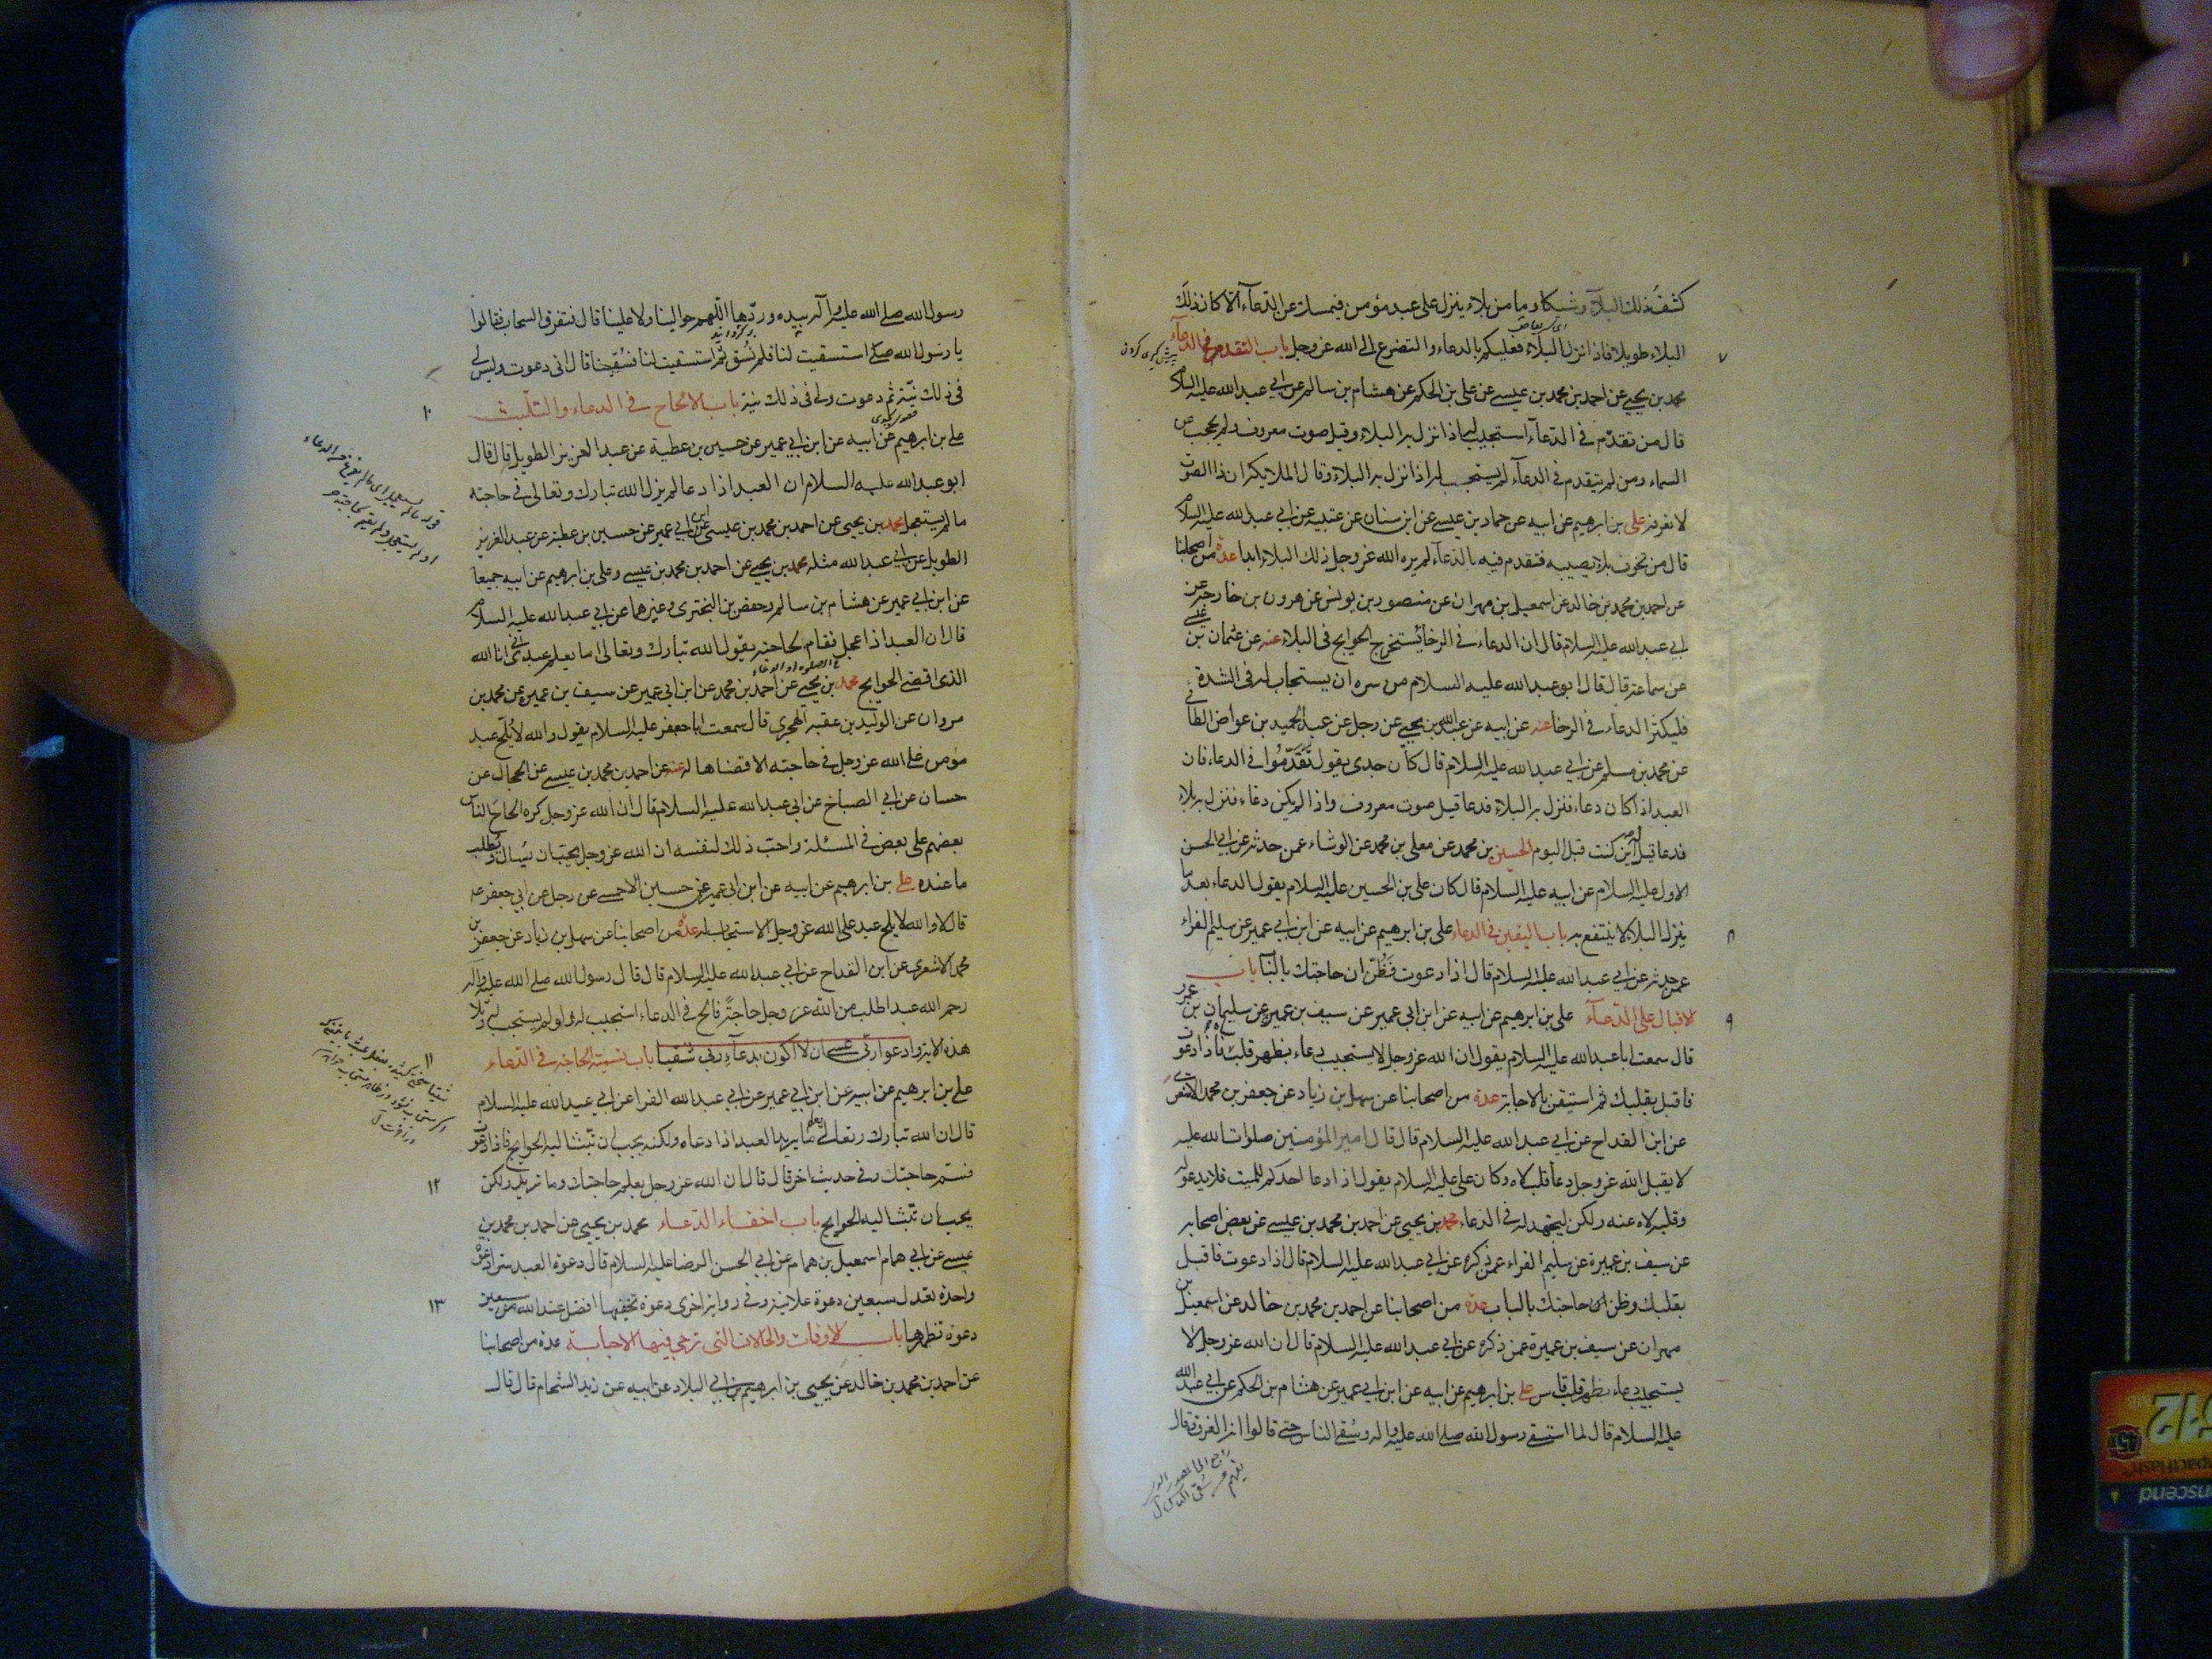 كشفُ ذلك البلاء وشيكا وما من بلاء ينزل على عبد مؤمن فيمسك عن الدعاء الا كان ذلك
البلاء طويلا فاذا نزل البلاء فعليكم بالدعاء والتضرع الى الله عز وجل باب التقدم في الدعاء
٧
محمد بن يحيى عن احمد بن محمد بن عيسى عن على بن الحكم عن هشام بن سالم عن ابي عبد الله عليه السلام
قال من تقدّم في الدعآء استجيب له اذا نزل به البلاء وقيل صوت معروف ولم يحجب عن
السماء ومن لم يتقدم في الدعآء لم يستجب له اذا نزل به البلاء وقال الملايكة ان ذا الصوت
لا نعرفه على بن ابرهيم عن ابيه عن حماد بن عيسى عن ابن سنان عن عنبسة عن ابي عبد الله عليه السلام
قال من تخوف بلاء يصيبه فتقدم فيه بالدعآء لم يره الله عز وجل ذلك البلاء ابدا عدة من اصحابنا
عن احمد بن محمد بن خالد عن اسمعيل بن مهران عن منصور بن يونس عن هرون بن خارجة عن
ابي عبد الله عليه السلام قال ان الدعاء في الرخآء يستخرج الحوايج في البلاء عنه عن عثمان بن عيسى
عن سماعة قال قال ابو عبد الله عليه السلام من سره ان يستجاب له في الشدة
فليكثر الدعاء في الرخا عنه عن ابيه عن عبيد الله بن يحيى عن رجل عن عبد الحميد بن عواض الطائي
عن محمد بن مسلم عن ابي عبد الله عليه السلام قال كان جدى يقول تَقَدَّمُوا في الدعاء فان
العبد اذا كان دعاء فنزل به البلاء فدعا قيل صوت معروف واذا لم يكن دعاء فنزل به بلاء
فدعا قيل اين كنت قبل اليوم الحسين بن محمد عن معلى بن محمد عن الوشاء عمن حدثه عن ابي الحسن
الاول عليه السلام عن ابيه عليه السلام قال كان على بن الحسين عليه السلام يقول الدعاء بعد ما
ينزل البلاء لا ينتفع به باب اليقين في الدعاء على بن ابرهيم عن ابيه عن ابن ابي عمير عن سليم الفراء
٨
عمن حدثه عن ابي عبد الله عليه السلام قال اذا دعوت فَظُنّ ان حاجتك بالباب باب
الاقبال على الدعآء على بن ابرهيم عن ابيه عن ابن ابي عمير عن سيف بن عميرة عن سليمان بن عمرو
٩
قال سمعت ابا عبد الله عليه السلام يقول ان الله عز وجل لا يستجيب دعاء بظهر قلب ساه فاذا دعوت
فاقبل بقلبك ثم استيقن بالاجابة عدة من اصحابنا عن سهل بن زياد عن جعفر بن محمد الاشعرى
عن ابن القداح عن ابي عبد الله عليه السلام قال قال امير المؤمنين صلوات الله عليه
لا يقبل الله عز وجل دعآ قلب لاه وكان على عليه السلام يقول اذا دعا احدكم للميت فلا يدعو له
وقلبه لاه عنه ولكن ليجتهد له في الدعاء محمد بن يحيى عن احمد بن محمد بن عيسى عن بعض اصحابه
عن سيف بن عميرة عن سليم الفراء عمن ذكره عن ابي عبد الله عليه السلام قال اذا دعوت فاقبل
بقلبك وظن ان حاجتك بالباب عدة من اصحابنا عن احمد بن محمد بن خالد عن اسمعيل بن
مهران عن سيف بن عميرة عمن ذكره عن ابي عبد الله عليه السلام قال ان الله عز وجل لا
يستجيب دعاء بظهر قلب قاس على بن ابرهيم عن ابيه عن ابن ابي عمير عن هشام بن الحكم عن ابي عبد الله
عليه السلام قال لما استسقى رسول الله صلى الله عليه واله وسقى الناس حتى قالوا انه الغرق وقال
رسول الله صلى الله عليه وآله بيده وردّها اللّهم حوالينا ولا علينا قال فتفرق السحاب فقالوا
يا رسول الله صلى استسقيت لنا فلم نُسْقَ ثم استسقيت لنا فسُقينا قال انى دعوت وليس لى
في ذلك نيّة ثم دعوت ولى في ذلك نية باب الالحاح في الدعاء والتلبث
١٠
على بن ابرهيم عن ابيه عن ابن ابي عمير عن حسين بن عطية عن عبد العزيز الطويل قال قال
ابو عبد الله عليه السلام ان العبد اذا دعا لم يزل الله تبارك وتعالى في حاجته
ما لم يستعجل محمد بن يحيى عن احمد بن محمد بن عيسى عن ابن ابي عمير عن حسين بن عطية عن عبد العزيز
الطويل عن ابي عبد الله مثله محمد بن يحيى عن احمد بن محمد بن عيسى وعلى بن ابرهيم عن ابيه جميعا
عن ابن ابي عمير عن هشام بن سالم وحفص بن البخترى وغيرهما عن ابي عبد الله عليه السلام
قال ان العبد اذا عجل فقام لحاجته يقول الله تبارك وتعالى اما يعلم عبدى انى انا الله
الذى اقضى الحوايج محمد بن يحيى عن احمد بن محمد عن ابن ابي عمير عن سيف بن عميرة عن محمد بن
مروان عن الوليد بن عقبة الهجرى قال سمعت ابا جعفر عليه السلام يقول والله لا يُلحّ عبد
مؤمن على الله عز وجل في حاجته الا قضاها له عنه عن احمد بن محمد بن عيسى عن الحجال عن
حسان عن ابي الصباح عن ابي عبد الله عليه السلام قال ان الله عز وجل كره الحاح الناس
بعضهم على بعض في المسئلة واحبّ ذلك لنفسه ان الله عز وجل يحبّ ان يُسأل ويُطلب
ما عنده على بن ابرهيم عن ابيه عن ابن ابي عمير عن حسين الاحمسى عن رجل عن ابي جعفر ع
قال لا والله لا يلح عبد على الله عز وجل الا استجاب له عدة من اصحابنا عن سهل بن زياد عن جعفر بن
محمد الاشعرى عن ابن القداح عن ابي عبد الله عليه السلام قال قال رسول الله صلى الله عليه وآله
رحم الله عبدا طلب من الله عز وجل حاجةً فالح في الدعاء استجيب له او لم يستجب له وتلا
هذه الاية وادعوا ربّى عسى ان لا اكون بدعآء ربى شقيا باب تسمية الحاجة في الدعاء
١١
على بن ابرهيم عن ابيه عن ابن ابي عمير عن ابي عبد الله الفرا عن ابي عبد الله عليه السلام
قال ان الله تبارك وتعالى يعلم ما يريد العبد اذا دعاه ولكنه يحب ان تبثّ اليه الحوايج فاذا دعوت
فسّم حاجتك وفي حديث اخر قال قال ان الله عز وجل يعلم حاجتك وما تريد ولكن
١٢
يحب ان تبثّ اليه الحوايج باب اخفاء الدعاء محمد بن يحيى عن احمد بن محمد بن
عيسى عن ابي همام اسمعيل بن همام عن ابي الحسن الرضا عليه السلام قال دعوة العبد سرا دعوة
واحدة تعدل سبعين دعوة علانية وفي رواية اخرى دعوة تخفيها افضل عند الله من سبعين
١٣
دعوة تظهرها باب الاوقات والحالات التى ترجى فيها الاجابة عدة من اصحابنا
عن احمد بن محمد بن خالد عن يحيى بن ابرهيم بن ابي البلاد عن ابيه عن زيد الشحام قال قال